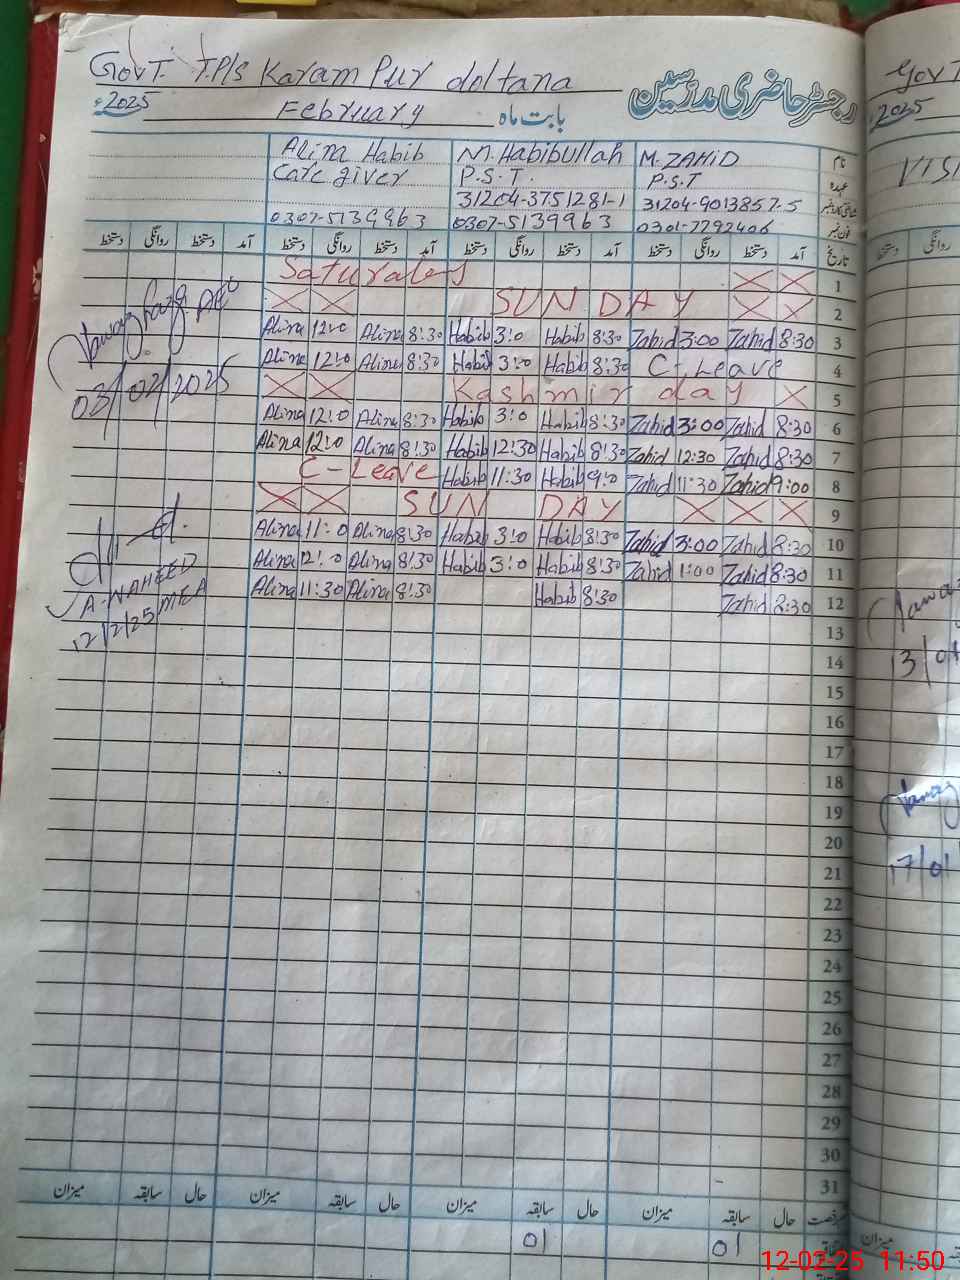 GovT. T.P/s Karam Pur doltana
رجسٹر حاضری مدرسین
2025ء February بابت ماہ
Alina Habib M. Habibullah M. ZAHID نام
Care giver P.S.T. P.S.T عہدہ
31204-3751281-1 31204-9013857-5
0307-5139963 0307-5139963 0301-7792406 فون نمبر
دستخط روانگی دستخط آمد دستخط روانگی دستخط آمد دستخط روانگی دستخط آمد دستخط روانگی دستخط آمد تاریخ
Saturaley 1
SUN DAY 2
Alina 12:0 Alina 8:30 Habib 3:0 Habib 8:30 Zahid 3:00 Zahid 8:30 3
Alina 12:0 Alina 8:30 Habib 3:0 Habib 8:30 C-Leave 4
03/02/2025
Kashmir day 5
Alina 12:0 Alina 8:30 Habib 3:0 Habib 8:30 Zahid 3:00 Zahid 8:30 6
Alina 12:0 Alina 8:30 Habib 12:30 Habib 8:30 Zahid 12:30 Zahid 8:30 7
C-Leave Habib 11:30 Habib 9:0 Zahid 11:30 Zahid 9:00 8
SUN DAY 9
Alina 11:0 Alina 8:30 Habib 3:0 Habib 8:30 Zahid 3:00 Zahid 8:30 10
Alina 12:0 Alina 8:30 Habib 3:0 Habib 8:30 Zahid 1:00 Zahid 8:30 11
Alina 11:30 Alina 8:30 Habib 8:30 Zahid 8:30 12
A-WAHEED
12/2/25 MEA
13
14
15
16
17
18
19
20
21
22
23
24
25
26
27
28
29
30
31
میزان سابقہ حال میزان سابقہ حال میزان سابقہ حال میزان سابقہ حال
01 01
GovT
2025
VISI
دستخط روانگی
13/01
17/01
میزان
12-02-25 11:50